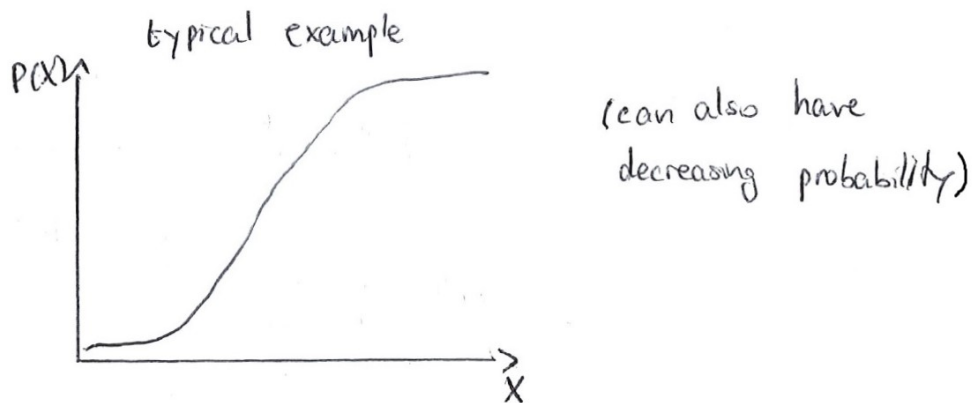 typical example
P(X)
(can also have
decreasing probability)
X